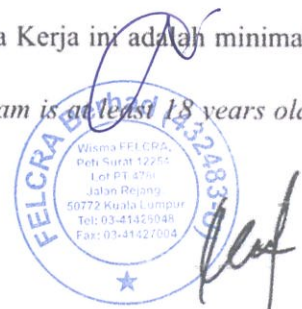 a Kerja ini adalah minima
am is at least 18 years old
FELCRA Berhad (432483-U)
Wisma FELCRA,
Peti Surat 12254
Lot PT 4780
Jalan Rejang
50772 Kuala Lumpur
Tel: 03-41426048
Fax: 03-41427004